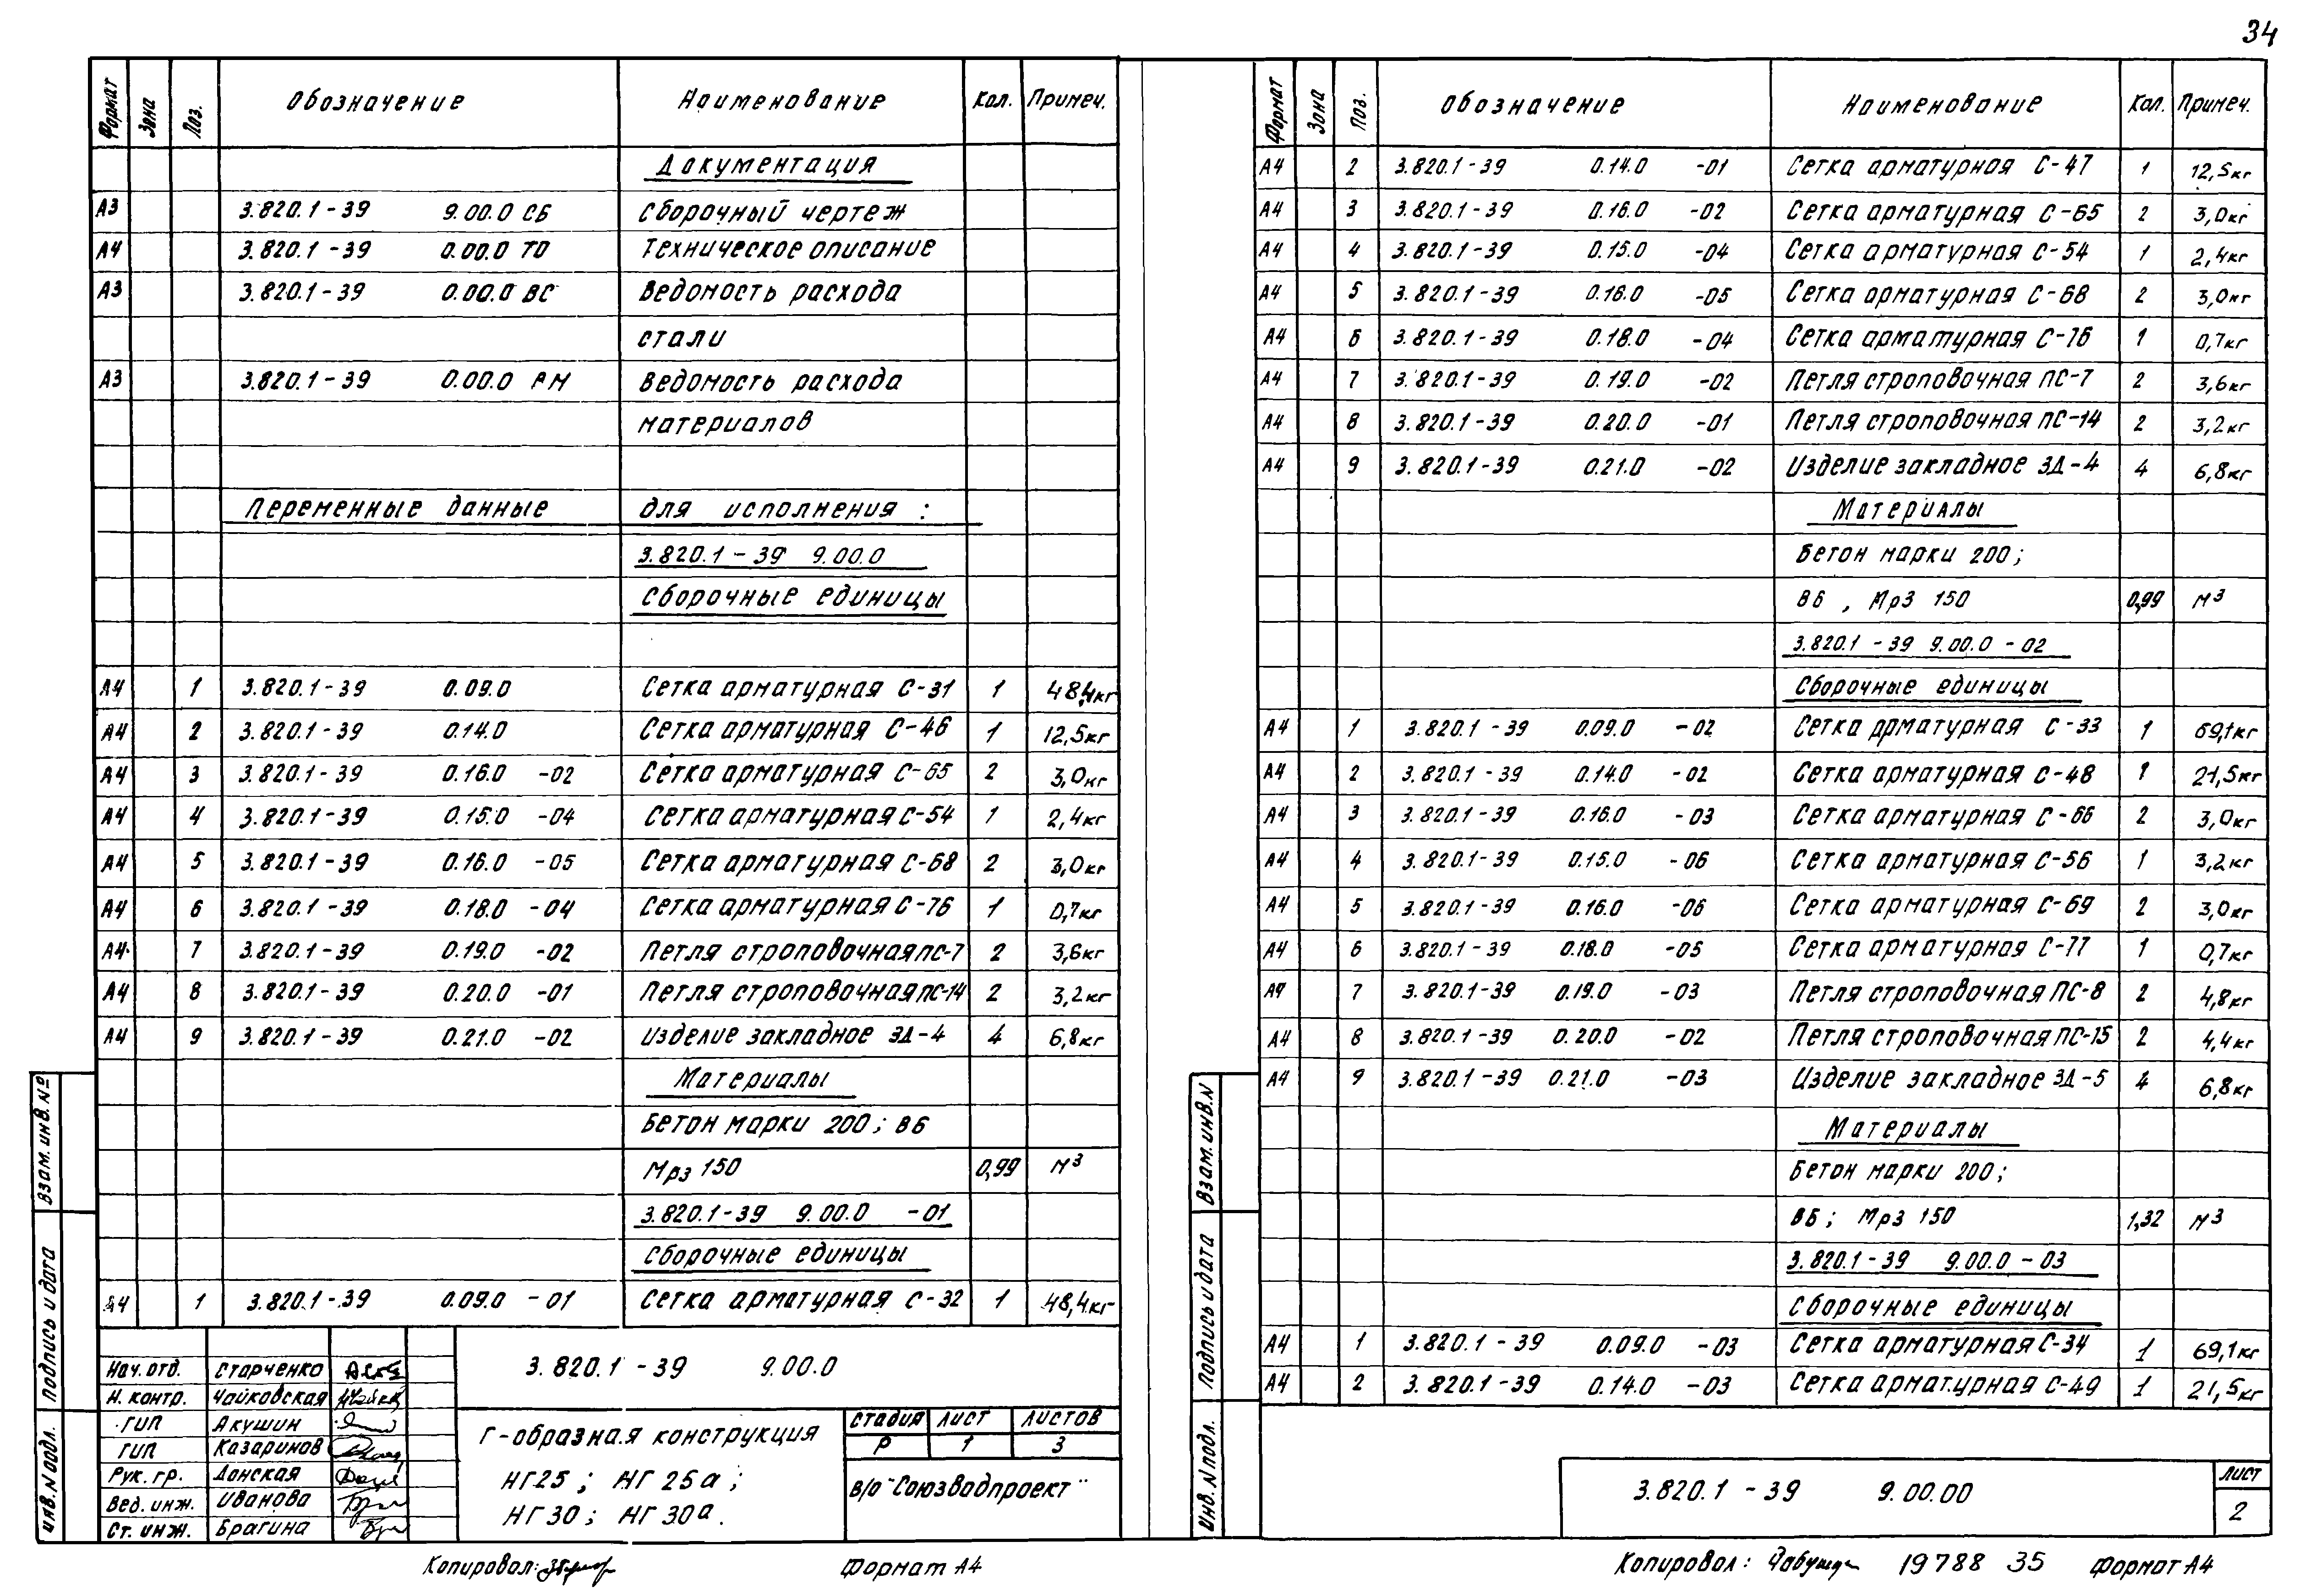 34
Формат Зона Поз. Обозначение Наименование Кол. Примеч.
Документация
А3 3.820.1-39 9.00.0 СБ Сборочный чертеж
А4 3.820.1-39 0.00.0 ТО Техническое описание
А3 3.820.1-39 0.00.0 ВС Ведомость расхода
стали
А3 3.820.1-39 0.00.0 РМ Ведомость расхода
материалов
Переменные данные для исполнения :
3.820.1-39 9.00.0
Сборочные единицы
А4 1 3.820.1-39 0.09.0 Сетка арматурная С-31 1 48,4кг
А4 2 3.820.1-39 0.14.0 Сетка арматурная С-46 1 12,5кг
А4 3 3.820.1-39 0.16.0 -02 Сетка арматурная С-65 2 3,0кг
А4 4 3.820.1-39 0.15.0 -04 Сетка арматурная С-54 1 2,4кг
А4 5 3.820.1-39 0.16.0 -05 Сетка арматурная С-68 2 3,0кг
А4 6 3.820.1-39 0.18.0 -04 Сетка арматурная С-76 1 0,7кг
А4 7 3.820.1-39 0.19.0 -02 Петля строповочная ПС-7 2 3,6кг
А4 8 3.820.1-39 0.20.0 -01 Петля строповочная ПС-14 2 3,2кг
А4 9 3.820.1-39 0.21.0 -02 Изделие закладное ЗД-4 4 6,8кг
Материалы
Бетон марки 200; В6
Мрз 150 0,99 м³
3.820.1-39 9.00.0 -01
Сборочные единицы
А4 1 3.820.1-39 0.09.0 -01 Сетка арматурная С-32 1 48,4кг
Взам. инв. №
Подпись и дата
Инв. N подл.
Нач. отд. Старченко
Н. контр. Чайковская
ГИП Якушин
ГИП Казаринов
Рук. гр. Донская
Вед. инж. Иванова
Ст. инж. Брагина
3.820.1-39 9.00.0
Г-образная конструкция
НГ25; НГ25а;
НГ30; НГ30а.
Стадия Лист Листов
Р 1 3
В/О "Союзводпроект"
Копировал:
Формат А4
Формат Зона Поз. Обозначение Наименование Кол. Примеч.
А4 2 3.820.1-39 0.14.0 -01 Сетка арматурная С-47 1 12,5кг
А4 3 3.820.1-39 0.16.0 -02 Сетка арматурная С-65 2 3,0кг
А4 4 3.820.1-39 0.15.0 -04 Сетка арматурная С-54 1 2,4кг
А4 5 3.820.1-39 0.16.0 -05 Сетка арматурная С-68 2 3,0кг
А4 6 3.820.1-39 0.18.0 -04 Сетка арматурная С-76 1 0,7кг
А4 7 3.820.1-39 0.19.0 -02 Петля строповочная ПС-7 2 3,6кг
А4 8 3.820.1-39 0.20.0 -01 Петля строповочная ПС-14 2 3,2кг
А4 9 3.820.1-39 0.21.0 -02 Изделие закладное ЗД-4 4 6,8кг
Материалы
Бетон марки 200;
В6 , Мрз 150 0,99 м³
3.820.1-39 9.00.0 -02
Сборочные единицы
А4 1 3.820.1-39 0.09.0 -02 Сетка арматурная С-33 1 69,1кг
А4 2 3.820.1-39 0.14.0 -02 Сетка арматурная С-48 1 21,5кг
А4 3 3.820.1-39 0.16.0 -03 Сетка арматурная С-66 2 3,0кг
А4 4 3.820.1-39 0.15.0 -06 Сетка арматурная С-56 1 3,2кг
А4 5 3.820.1-39 0.16.0 -06 Сетка арматурная С-69 2 3,0кг
А4 6 3.820.1-39 0.18.0 -05 Сетка арматурная С-77 1 0,7кг
А4 7 3.820.1-39 0.19.0 -03 Петля строповочная ПС-8 2 4,8кг
А4 8 3.820.1-39 0.20.0 -02 Петля строповочная ПС-15 2 4,4кг
А4 9 3.820.1-39 0.21.0 -03 Изделие закладное ЗД-5 4 6,8кг
Материалы
Бетон марки 200;
В6; Мрз 150 1,32 м³
3.820.1-39 9.00.0-03
Сборочные единицы
А4 1 3.820.1-39 0.09.0 -03 Сетка арматурная С-34 1 69,1кг
А4 2 3.820.1-39 0.14.0 -03 Сетка арматурная С-49 1 21,5кг
Взам. инв. N
Подпись и дата
Инв. N подл.
3.820.1-39 9.00.00
Лист
2
Копировал: 19788 35 Формат А4